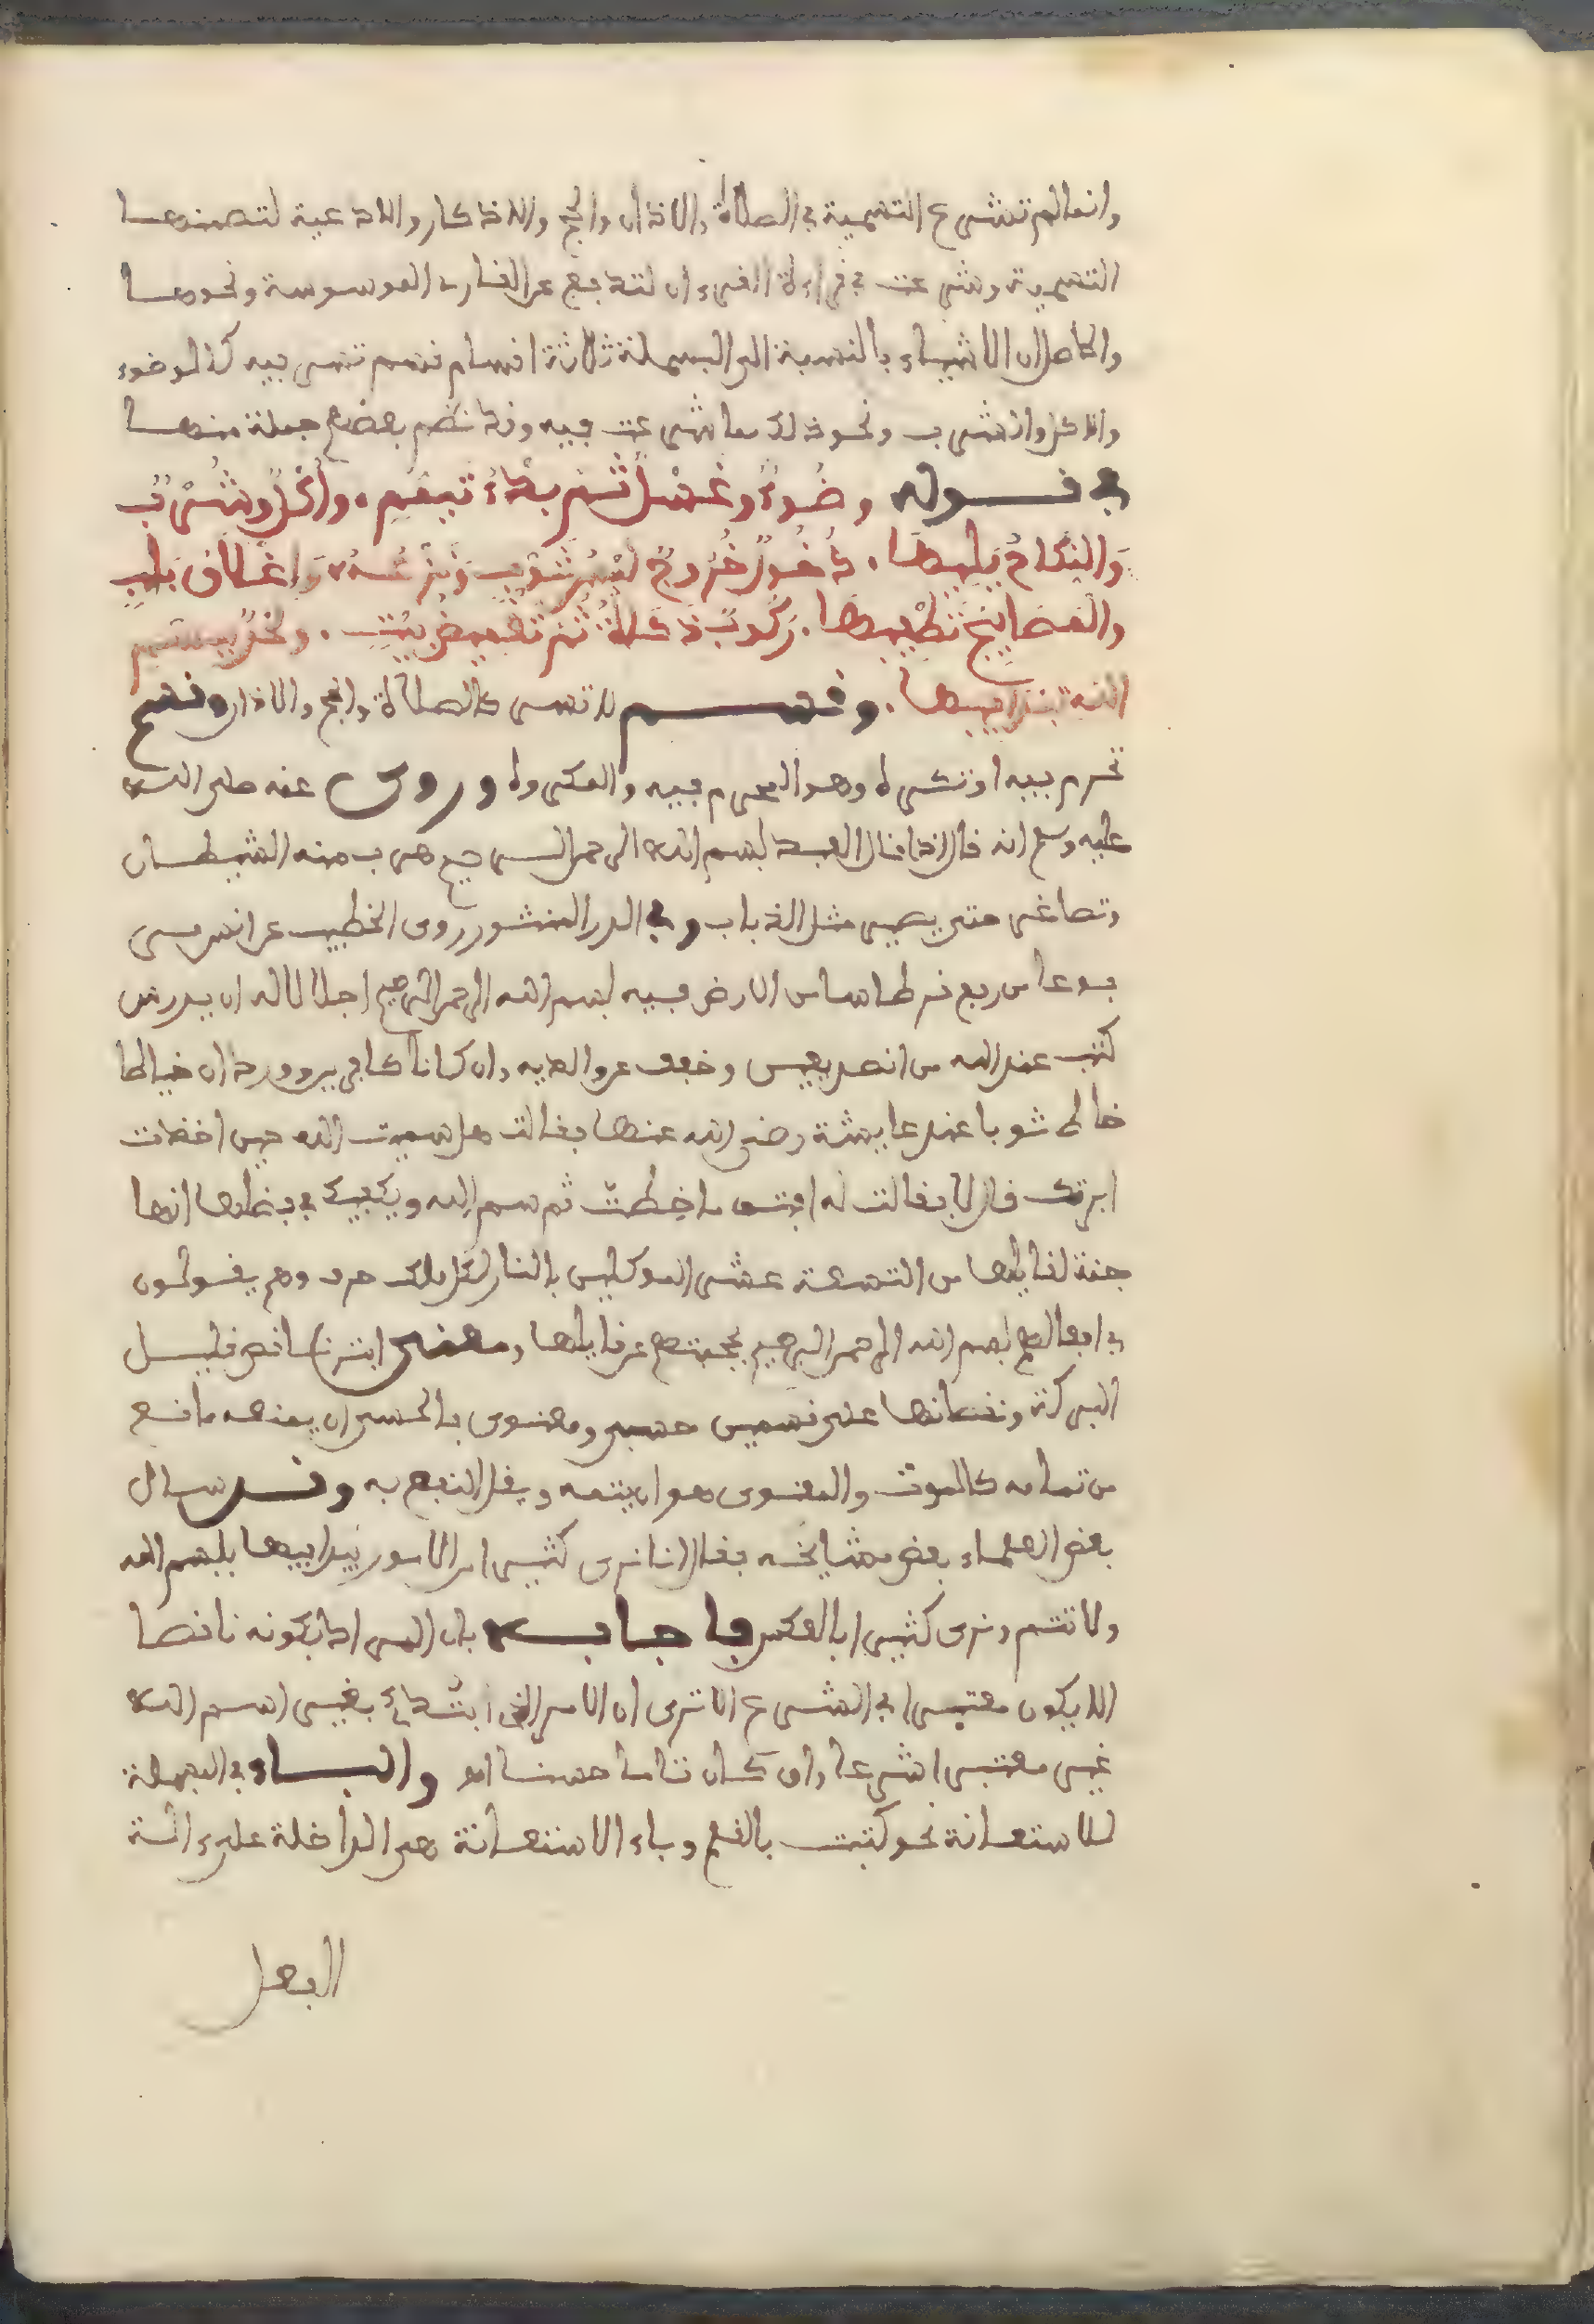 وانما لم تشرع التسمية في الصلاة والاذان والحج والاذكار والادعية لتضمنها
التسمية وشرعت في قراءة القرءان لتدفع عن القارئ الوسوسة ونحوها
والحاصل ان الاشياء بالنسبة الى البسملة ثلاثة اقسام قسم تسن فيه كالوضوء
والاكل والشرب ونحو ذلك مما شرعت فيه وقد نظم بعضهم جملة منها
في قوله وضوءٌ وغسلٌ ثم بدءُ تيمم . واكلٌ وشربٌ
والنكاح يليها . دخول خروج لبس ثوب ونزعه واغلاق باب
والمصابيح تطفيها . ركوب ثم تغميض ميت . ونحر بسم
الله تبتدا فيها . وقسم لا تسن كالصلاة والحج والاذان وقسم
تحرم فيه او تكره وهو المحرم فيه والمكروه وروي عنه صلى الله
عليه وسلم انه قال اذا قال العبد بسم الله الرحمن الرحيم هرب منه الشيطان
وتصاغر حتى يصير مثل الذباب وفي الدر المنثور روى الخطيب عن انس
مرفوعا من رفع قرطاسا من الارض فيه بسم الله الرحمن الرحيم اجلالا له ان يدرس
كتب عند الله من الصديقين وخفف عن والديه وان كانا كافرين وورد ان خياطا
خاط ثوبا عند عايشة رضي الله عنها فقالت هل سميت الله حين اخذت
ابرتك قال لا فقالت له افتق ما خطت ثم سم الله ويكفيك في فضلها انها
جنة لقايلها من التسعة عشر الموكلين بالنار لكل ملك حرف وهم يقولون
في افعالهم بسم الله الرحمن الرحيم عن قايلها ومعنى ابتر ناقص قليل
البركة ونقصانها على قسمين حسي ومعنوي فالحسي ان يمنعه مانع
من تمامه كالموت والمعنوي هو ان يتمه ويقل النفع به وقد سال
بعض العلماء بعض مشايخه فقال انا نرى كثيرا من الامور يبدا فيها ببسم الله
ولا تتم ونرى كثيرا بالعكس فاجابه بان المراد بكونه ناقصا
الا يكون معتبرا في الشرع الا ترى ان الامر الذي ابتدئ بغير اسم الله
غير معتبر شرعا وان كان تاما حسا اه والباء في البسملة
للاستعانة نحو كتبت بالقلم وباء الاستعانة هي الداخلة على ءالة
الفعل